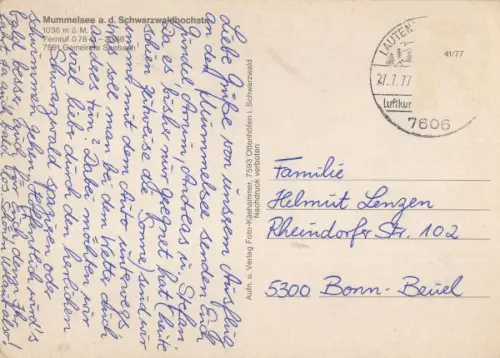 Mummelsee a. d. Schwarzwaldhochstr.
1036 m ü. M.
7591 Gemeinde Seebach
Liebe Grüße von unserem Ausflug
an den Mummelsee senden Euch
Gundel, Armin, Andreas u. Stefan
Da es bisher nur geregnet hat (heute
schien zeitweise die Sonne) sind wir
immer mit dem Auto unterwegs
was soll man bei dem Wetter auch
anderes tun? Dabei möchten wir
viel lieber durch den herrlichen
Schwarzwald spazieren oder
schwimmen gehen. Hoffentlich wird's
bald besser, auch für Euch, denn Ihr
Aufn. u. Verlag Foto-Kashammer, 7593 Ottenhöfen i. Schwarzwald
Nachdruck verboten
LAUTEN
27.7.77
Luftkur
7606
41/77
Familie
Helmut Lenzen
Rheindorfer Str. 102
5300 Bonn-Beuel